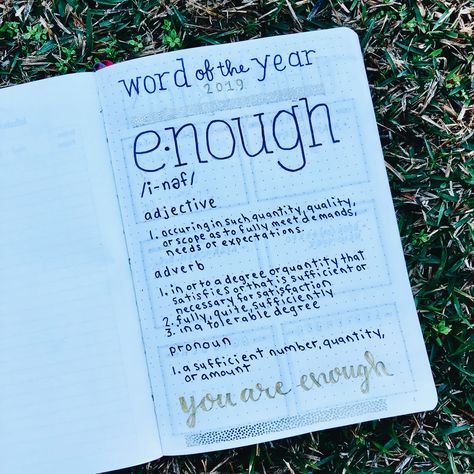 word of the year
2019
e·nough
/i-nəf/
adjective
1. occuring in such quantity, quality,
or scope as to fully meet demands,
needs or expectations.
adverb
1. in or to a degree or quantity that
satisfies or that is sufficient or
necessary for satisfaction
2. fully, quite, sufficiently
3. in a tolerable degree
pronoun
1. a sufficient number, quantity,
or amount
you are enough